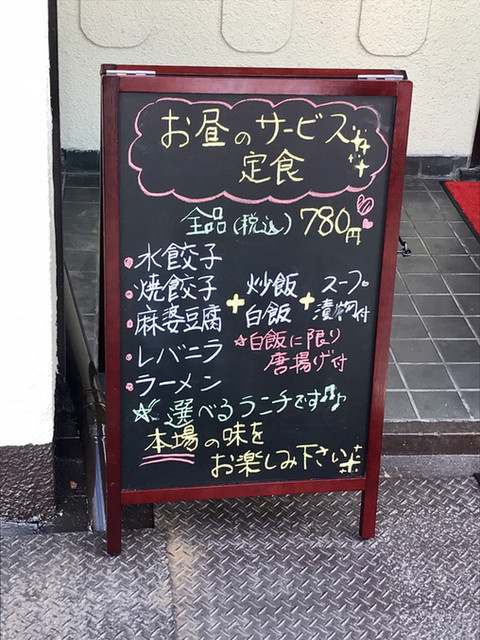 お昼のサービス
定食
全品(税込) 780円
・水餃子
・焼餃子
・麻婆豆腐
・レバニラ
・ラーメン
+ 炒飯 白飯 + スープ 漬物付
☆白飯に限り
唐揚げ付
☆選べるランチです♪♪
本場の味を
お楽しみ下さい